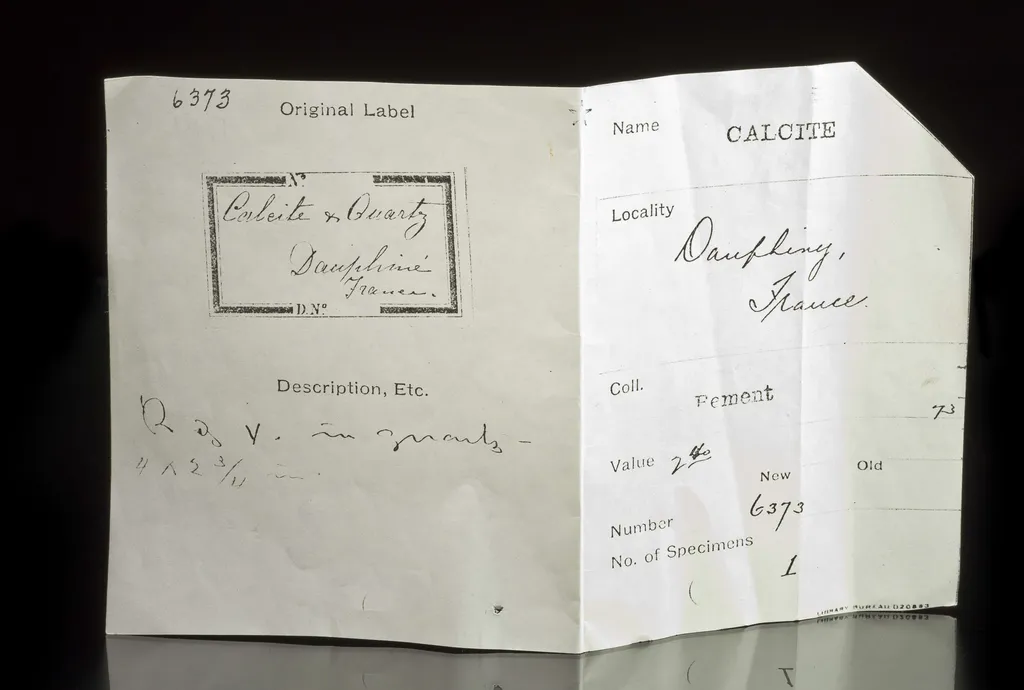 6373
Original Label
Nº
Calcite & Quartz
Dauphiné
France.
D.Nº
Description, Etc.
in quartz -
4 x 2 3/4
Name CALCITE
Locality
Dauphiny,
France.
Coll. Bement
73
Value
New Old
Number 6373
No. of Specimens 1
LIBRARY BUREAU D20893